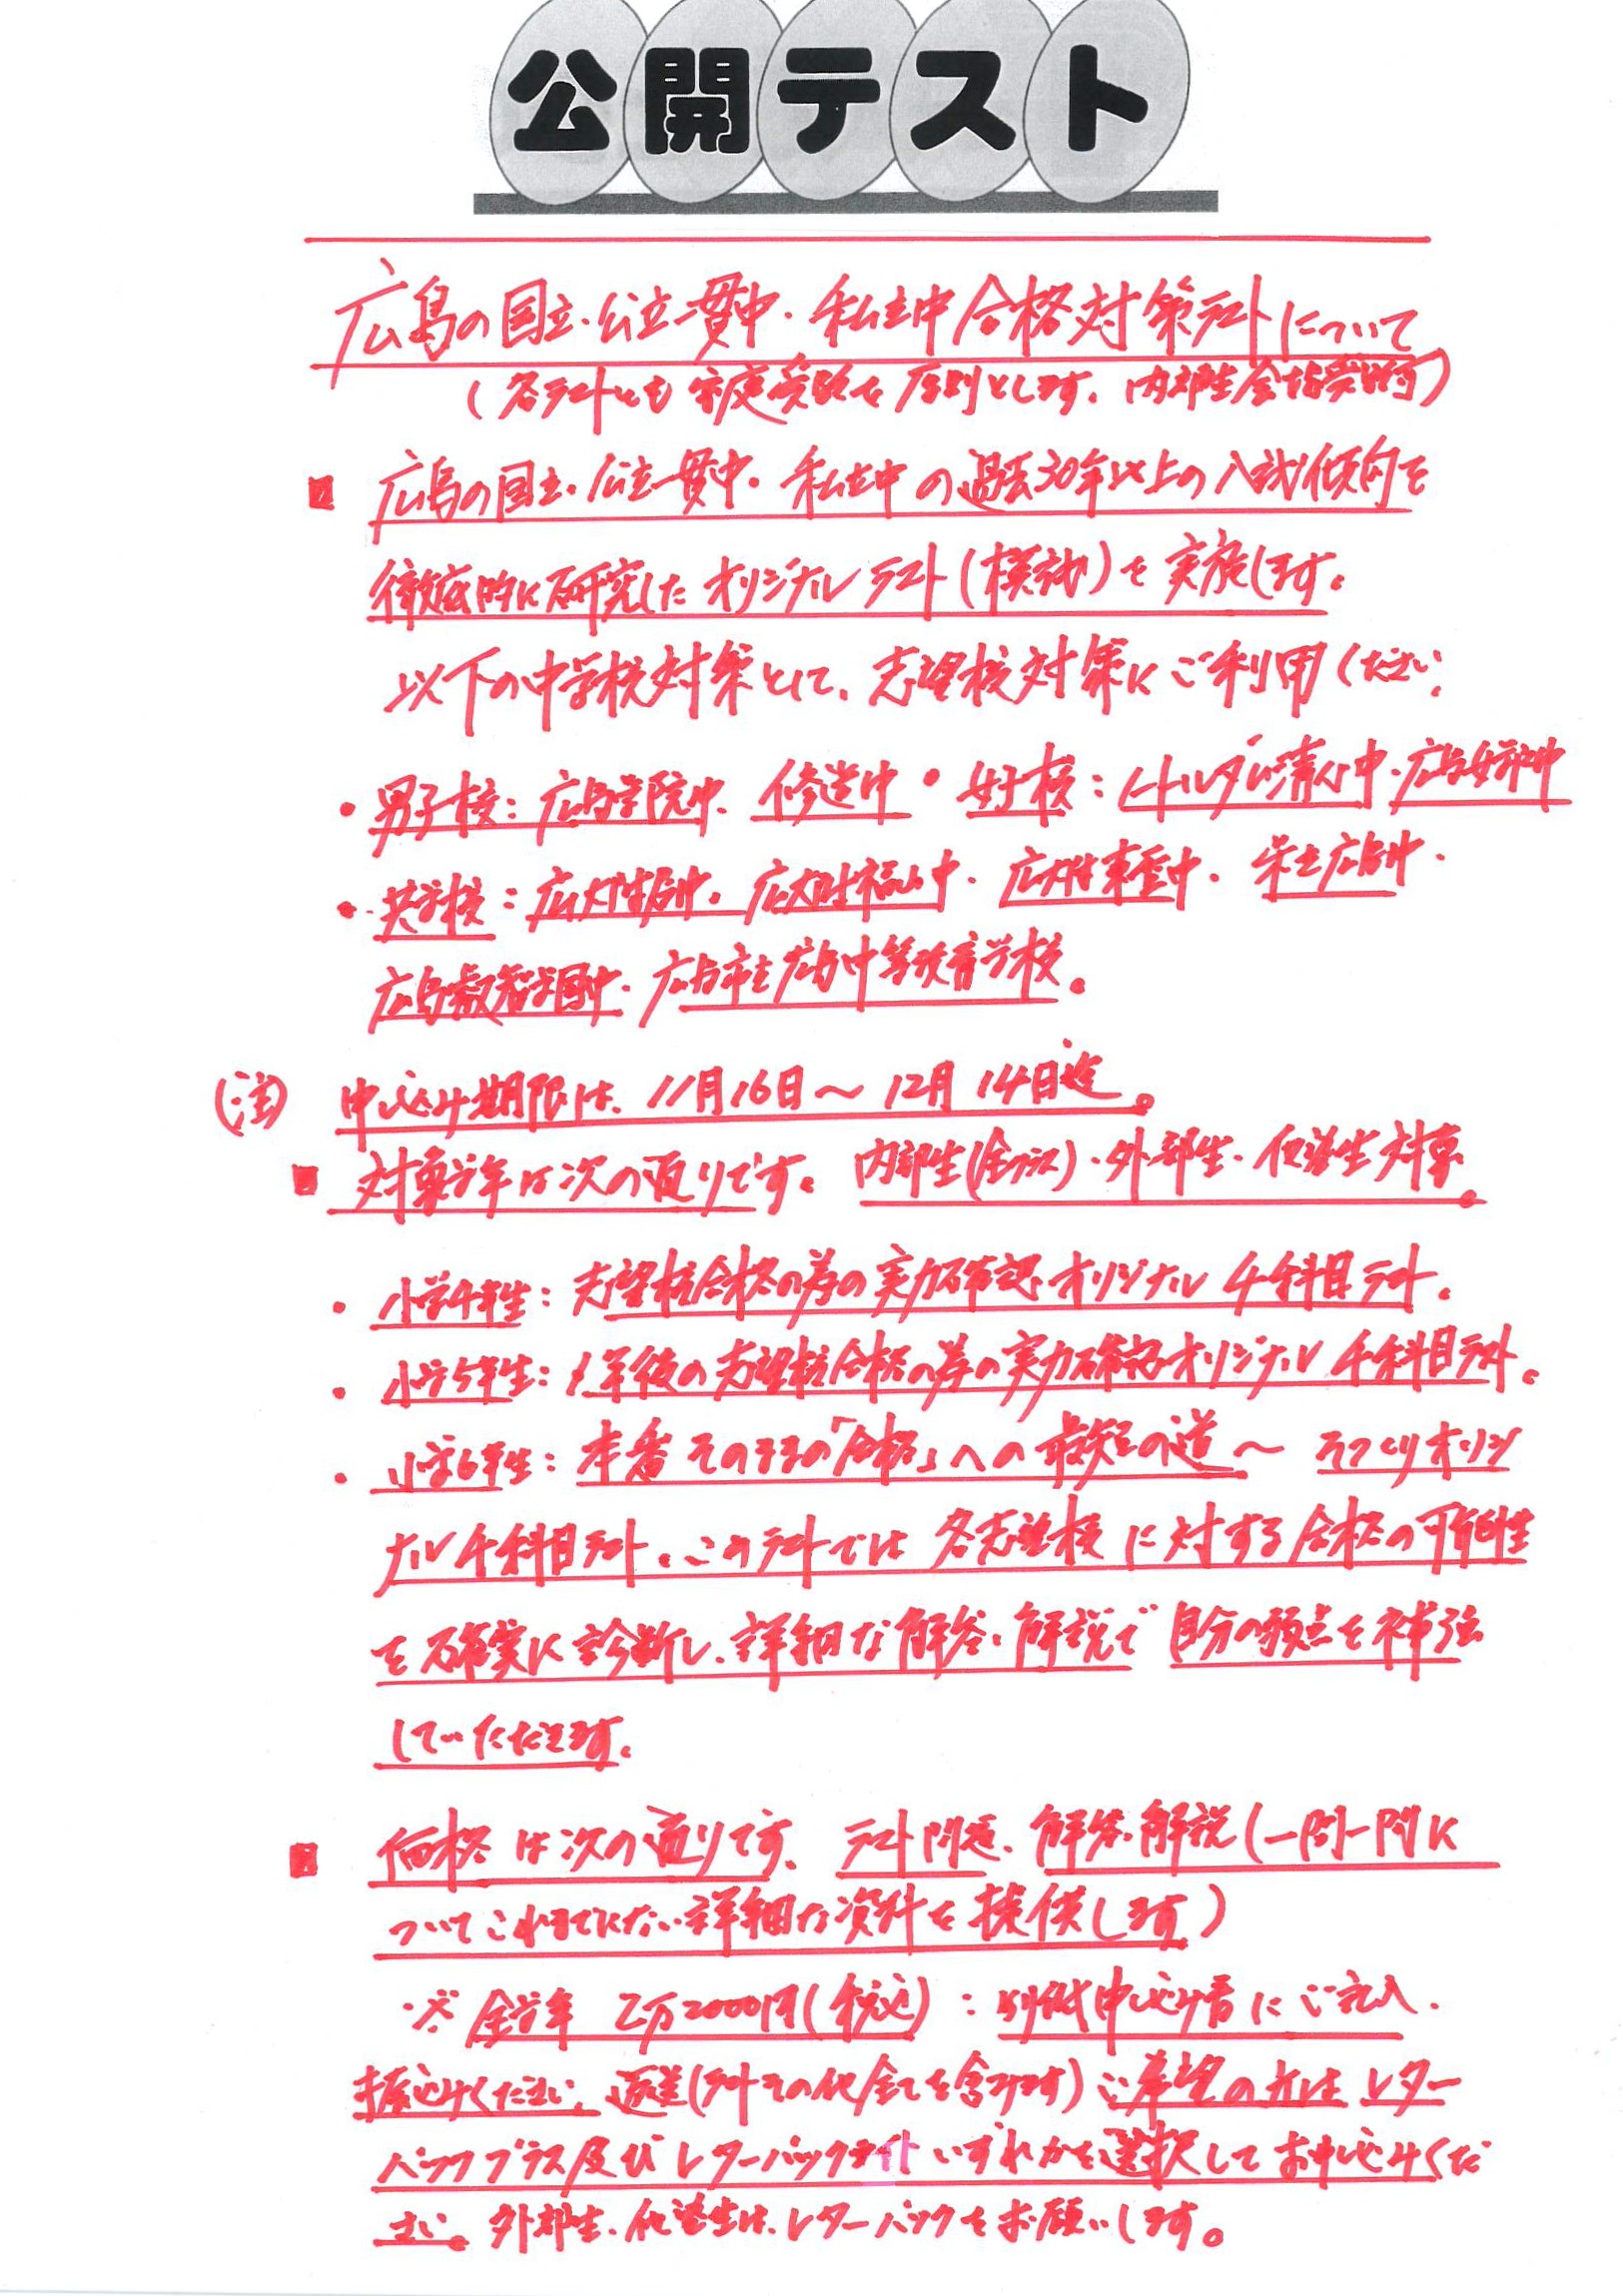 公開テスト
広島の国立・公立一貫中・私立中合格対策テストについて
(各テストとも家庭受験を原則とします。内部生会場受験可)
■ 広島の国立・公立一貫中・私立中の過去30年以上の入試傾向を
徹底的に研究したオリジナルテスト(模試)を実施します。
以下の中学校対策として、志望校対策にご利用ください。
・男子校:広島学院中、修道中・女子校:ノートルダム清心中・広島女学院中
・共学校:広大附属中・広大附福山中・広大附東雲中・県立広島中・
広島叡智学園中・広島市立広島中等教育学校。
(注) 申し込み期限は、11月16日〜12月14日迄。
■ 対象学年は次の通りです。内部生(全クラス)・外部生・他塾生対象。
・小学4年生:志望校合格の為の実力確認オリジナル4科目テスト。
・小学5年生:1年後の志望校合格の為の実力確認オリジナル4科目テスト。
・小学6年生:本番そのままの「合格」への最短の道〜そっくりオリジ
ナル4科目テスト。このテストでは各志望校に対する合格の可能性
を確実に診断し、詳細な解答・解説で自分の弱点を補強
していただきます。
■ 価格は次の通りです、テスト問題、解答・解説(一問一問に
ついてこれまでにない詳細な資料を提供します)
※ 全学年 2万2000円(税込):別紙申し込み書にご記入・
振込みください。返送(テストその他全てを含みます)ご希望の方はレター
パックプラス及びレターパックライトいずれかを選択してお申し込みくだ
さい。外部生・他塾生は、レターパックをお願いします。